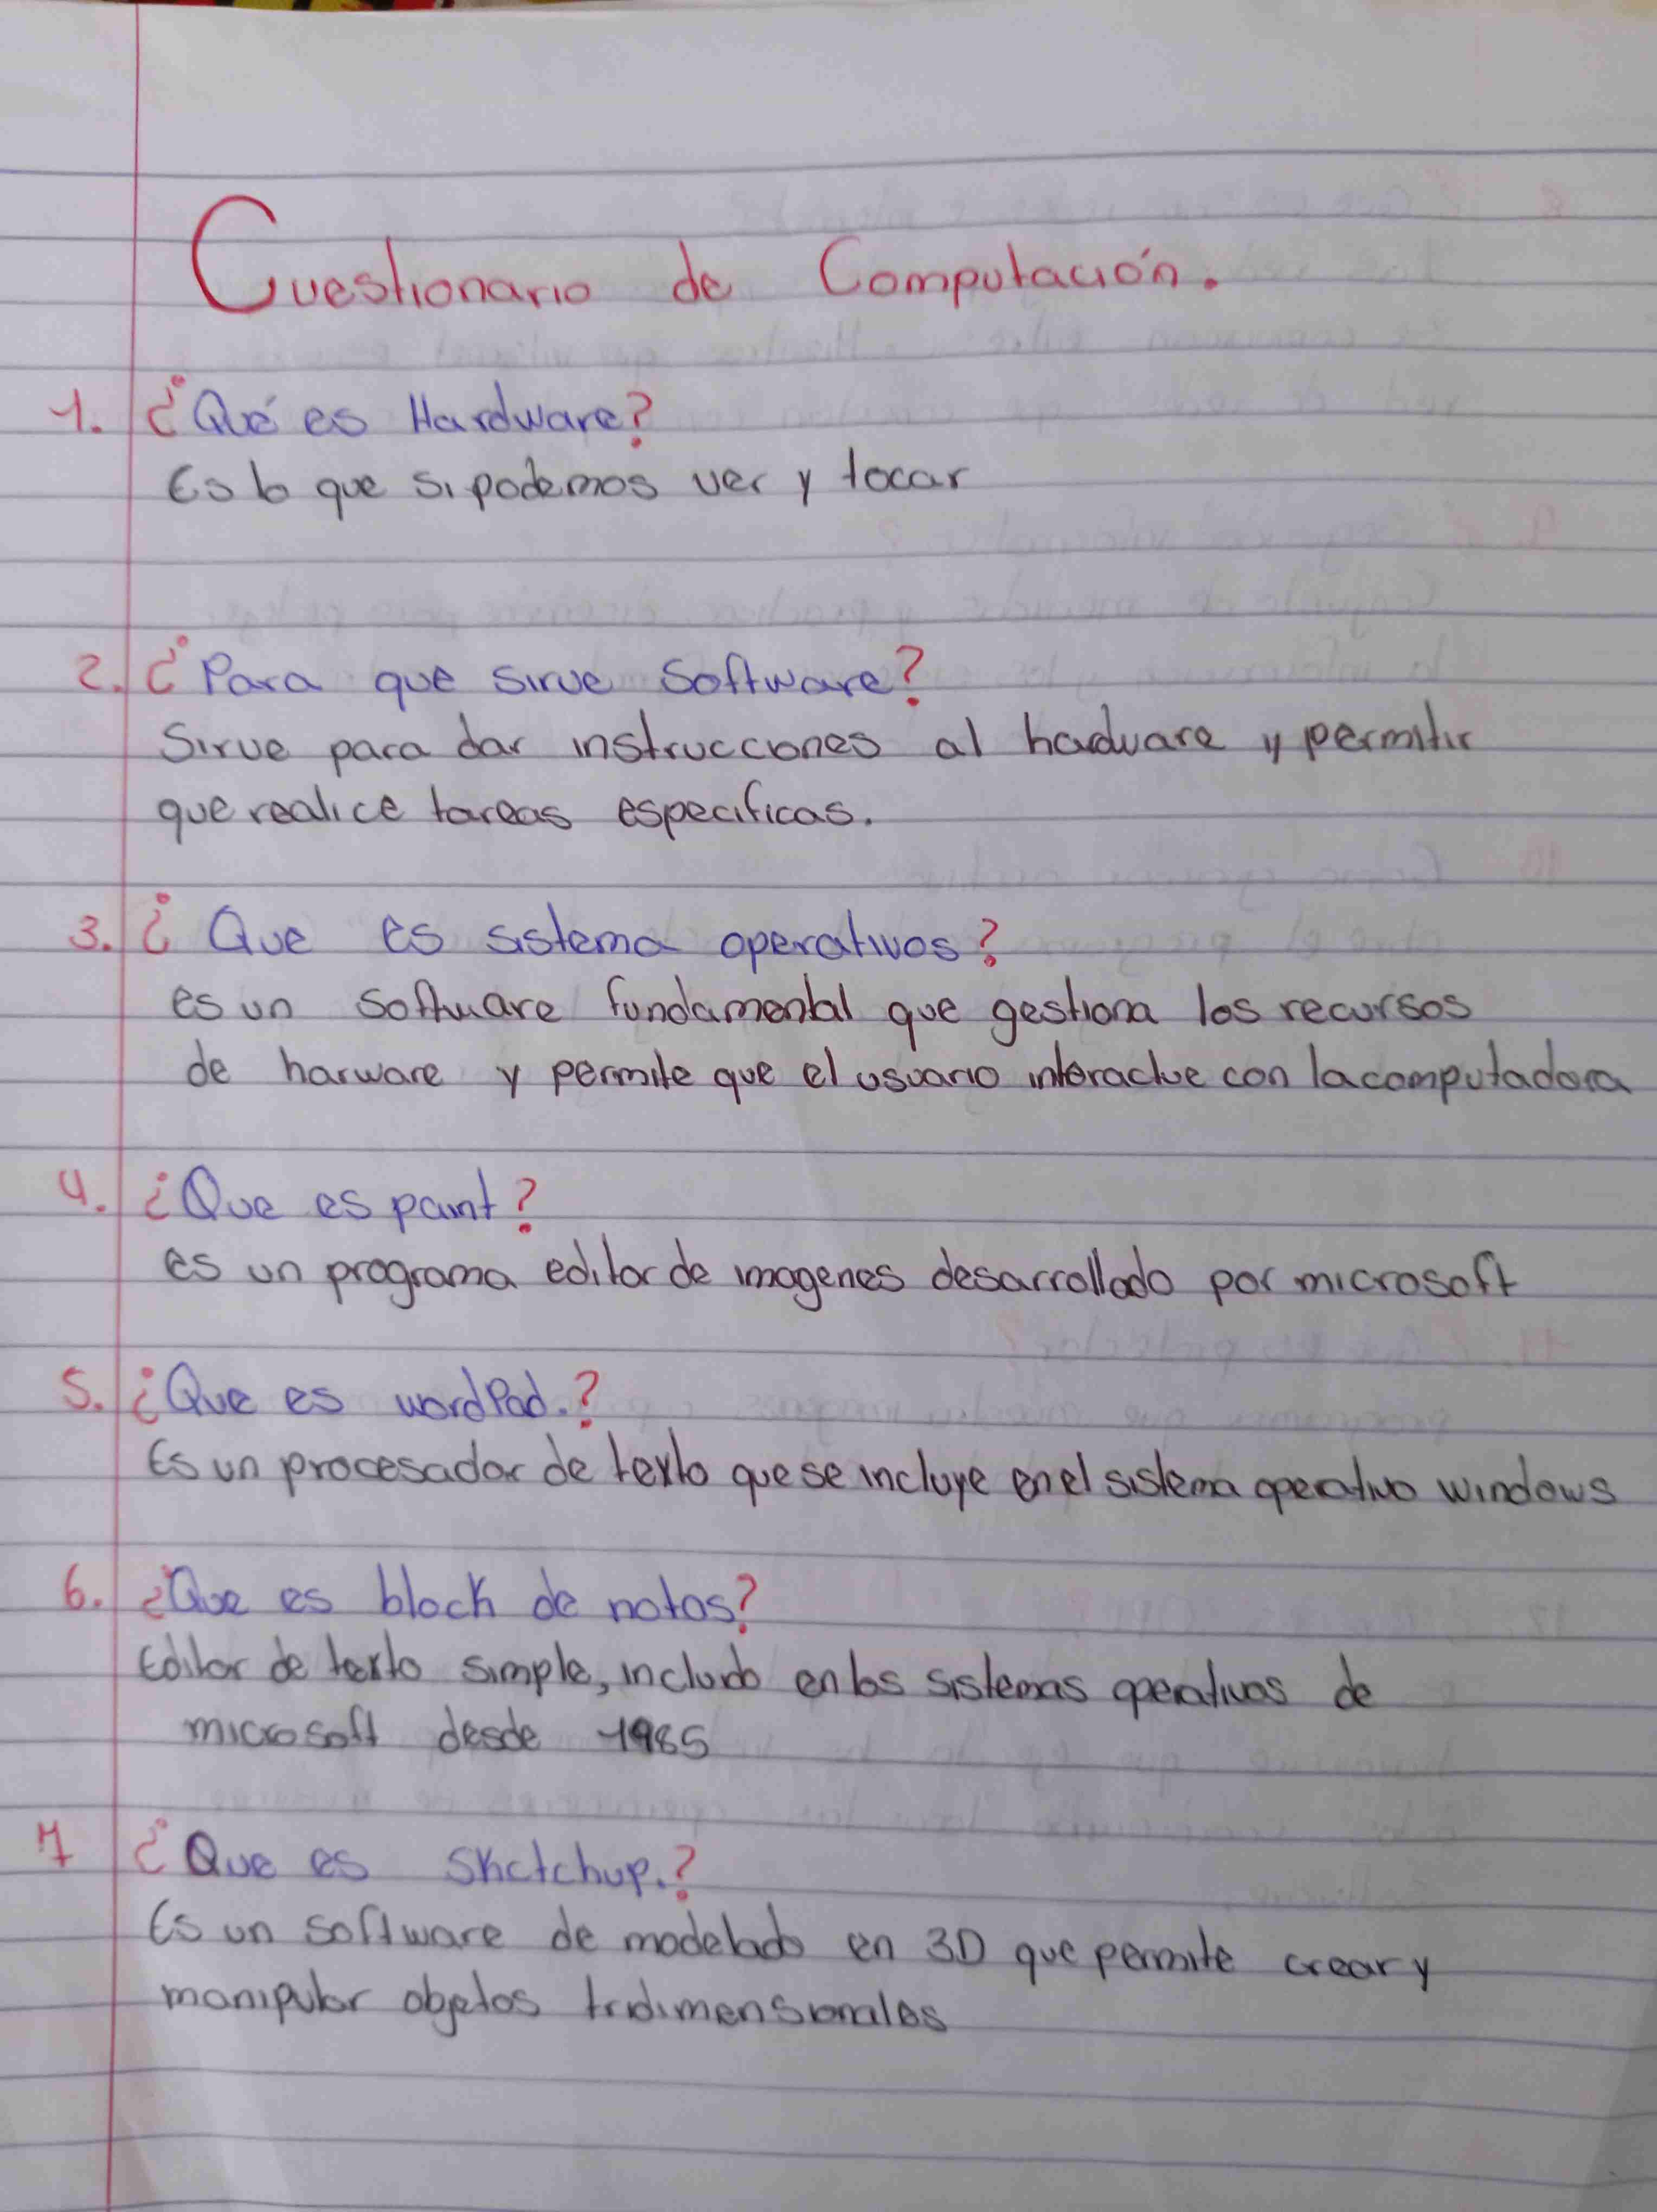 Cuestionario de Computación.
1. ¿Qué es Hardware?
Es lo que si podemos ver y tocar
2. ¿Para que sirve Software?
Sirve para dar instrucciones al hardware y permitir
que realice tareas especificas.
3. ¿Que es sistema operativos?
es un software fundamental que gestiona los recursos
de harware y permite que el usuario interactue con la computadora
4. ¿Que es paint?
es un programa editor de imagenes desarrollado por microsoft
5. ¿Que es wordPad.?
Es un procesador de texto que se incluye en el sistema operativo windows
6. ¿Que es block de notas?
Editor de texto simple, includo en los sistemas operativos de
microsoft desde 1985
7 ¿Que es Sketchup.?
Es un software de modelado en 3D que permite crear y
manipular objetos tridimensionales